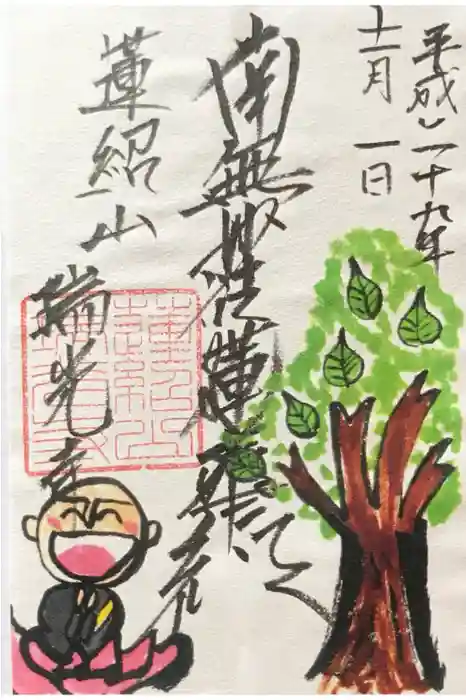 平成二十九年
十一月一日
南無妙法蓮華経
蓮紹山
瑞光寺